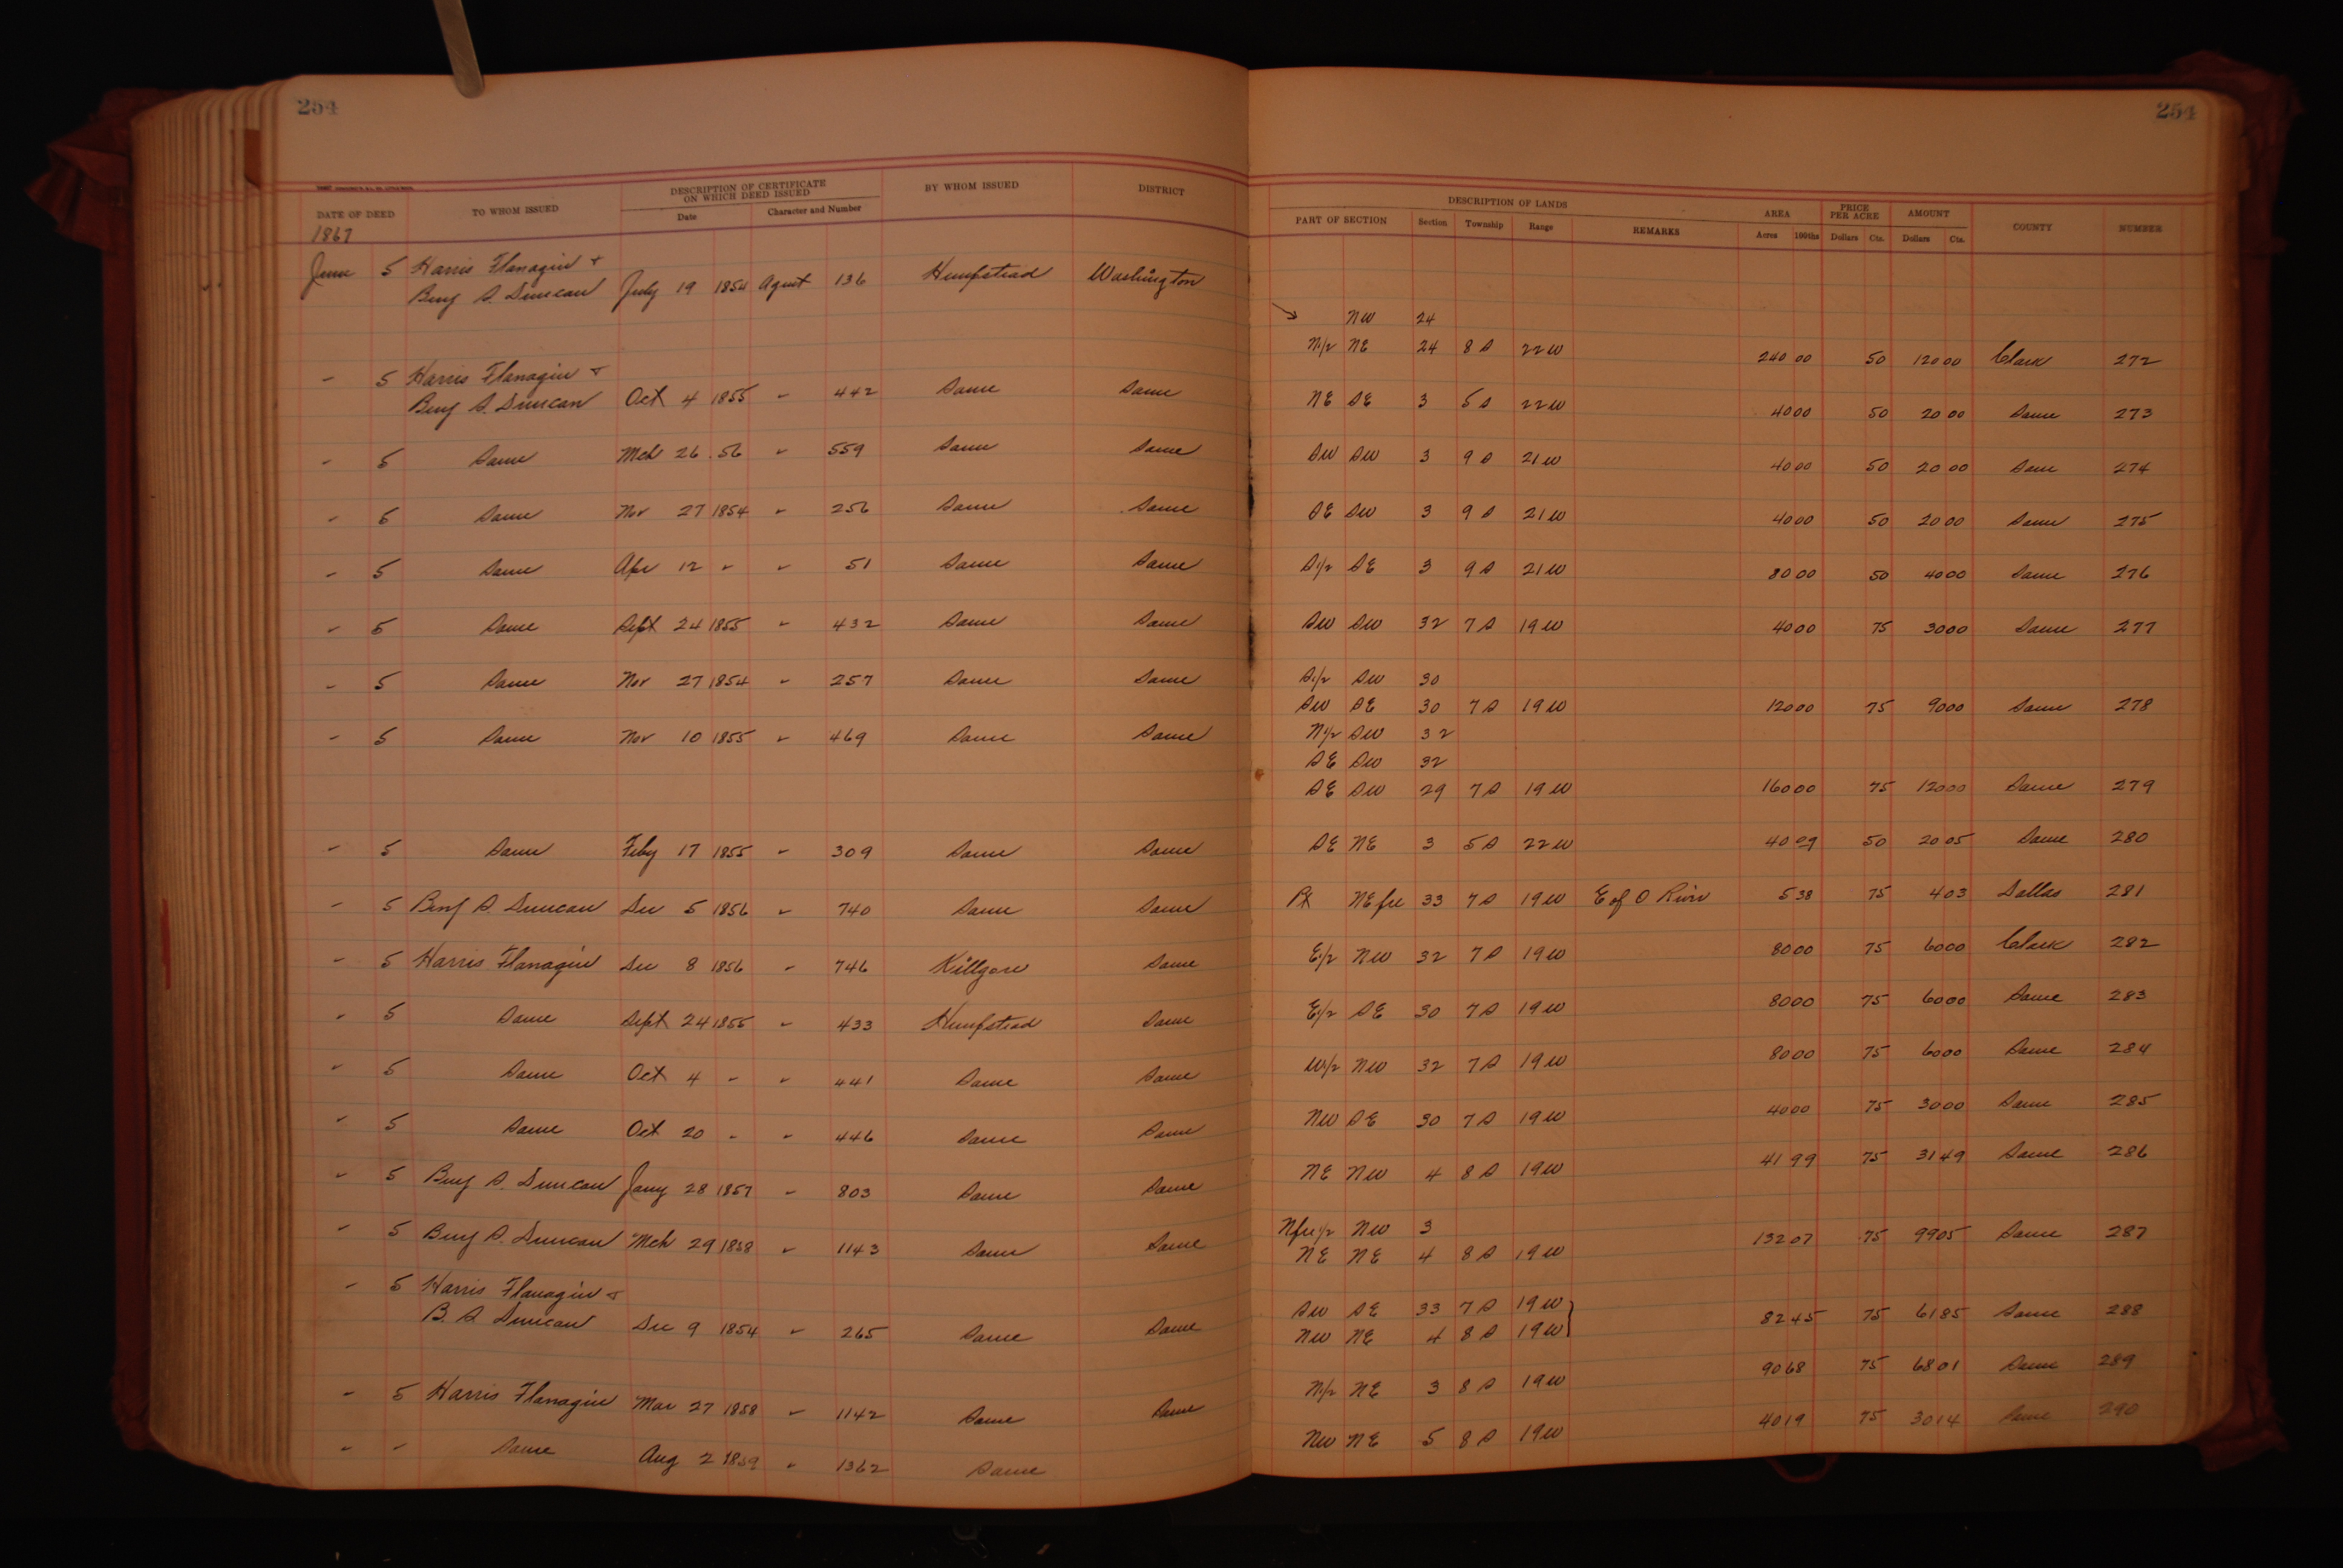 254
254
DATE OF DEED
TO WHOM ISSUED
DESCRIPTION OF CERTIFICATE
ON WHICH DEED ISSUED
Date
Character and Number
BY WHOM ISSUED
DISTRICT
DESCRIPTION OF LANDS
PART OF SECTION
Section
Township
Range
REMARKS
AREA
Acres
100ths
PRICE
PER ACRE
Dollars
Cts.
AMOUNT
Dollars
Cts.
COUNTY
NUMBER
1867
June 5 Harris Flanagin +
Benj S. Duncan July 19 1854 Agent 136 Hempstead Washington
NW 24
N1/2 NE 24 8 S 22 W 240 00 50 120 00 Clark 272
" 5 Harris Flanagin +
Benj S. Duncan Oct 4 1855 " 442 Same Same NE SE 3 5 S 22 W 40 00 50 20 00 Same 273
" 5 Same Mch 26 56 " 559 Same Same SW SW 3 9 S 21 W 40 00 50 20 00 Same 274
" 5 Same Nov 27 1854 " 256 Same Same SE SW 3 9 S 21 W 40 00 50 20 00 Same 275
" 5 Same Apr 12 " " 51 Same Same S1/2 SE 3 9 S 21 W 80 00 50 40 00 Same 276
" 5 Same Sept 24 1855 " 432 Same Same SW SW 32 7 S 19 W 40 00 75 30 00 Same 277
" 5 Same Nov 27 1854 " 257 Same Same S1/2 SW 30
SW SE 30 7 S 19 W 120 00 75 90 00 Same 278
" 5 Same Nov 10 1855 " 469 Same Same N1/2 SW 32
SE SW 32
SE SW 29 7 S 19 W 160 00 75 120 00 Same 279
" 5 Same Feby 17 1855 " 309 Same Same SE NE 3 5 S 22 W 40 09 50 20 05 Same 280
" 5 Benj S. Duncan Dec 5 1856 " 740 Same Same Pt NE fre 33 7 S 19 W E of O River 5 38 75 4 03 Dallas 281
" 5 Harris Flanagin Dec 8 1856 " 746 Killgore Same E1/2 NW 32 7 S 19 W 80 00 75 60 00 Clark 282
" 5 Same Sept 24 1855 " 433 Hempstead Same E1/2 SE 30 7 S 19 W 80 00 75 60 00 Same 283
" 5 Same Oct 4 " " 441 Same Same W1/2 NW 32 7 S 19 W 80 00 75 60 00 Same 284
" 5 Same Oct 20 " " 446 Same Same NW SE 30 7 S 19 W 40 00 75 30 00 Same 285
" 5 Benj S. Duncan Jany 28 1857 " 803 Same Same NE NW 4 8 S 19 W 41 99 75 31 49 Same 286
" 5 Benj S. Duncan Mch 29 1858 " 1143 Same Same N fre 1/2 NW 3
NE NE 4 8 S 19 W 132 07 75 99 05 Same 287
" 5 Harris Flanagin +
B. S. Duncan Dec 9 1854 " 265 Same Same SW SE 33 7 S 19 W
NW NE 4 8 S 19 W 82 45 75 61 85 Same 288
" 5 Harris Flanagin Mar 27 1858 " 1142 Same Same N1/2 NE 3 8 S 19 W 90 68 75 68 01 Same 289
" " Same Aug 2 1859 " 1362 Same NW NE 5 8 S 19 W 40 19 75 30 14 Same 290